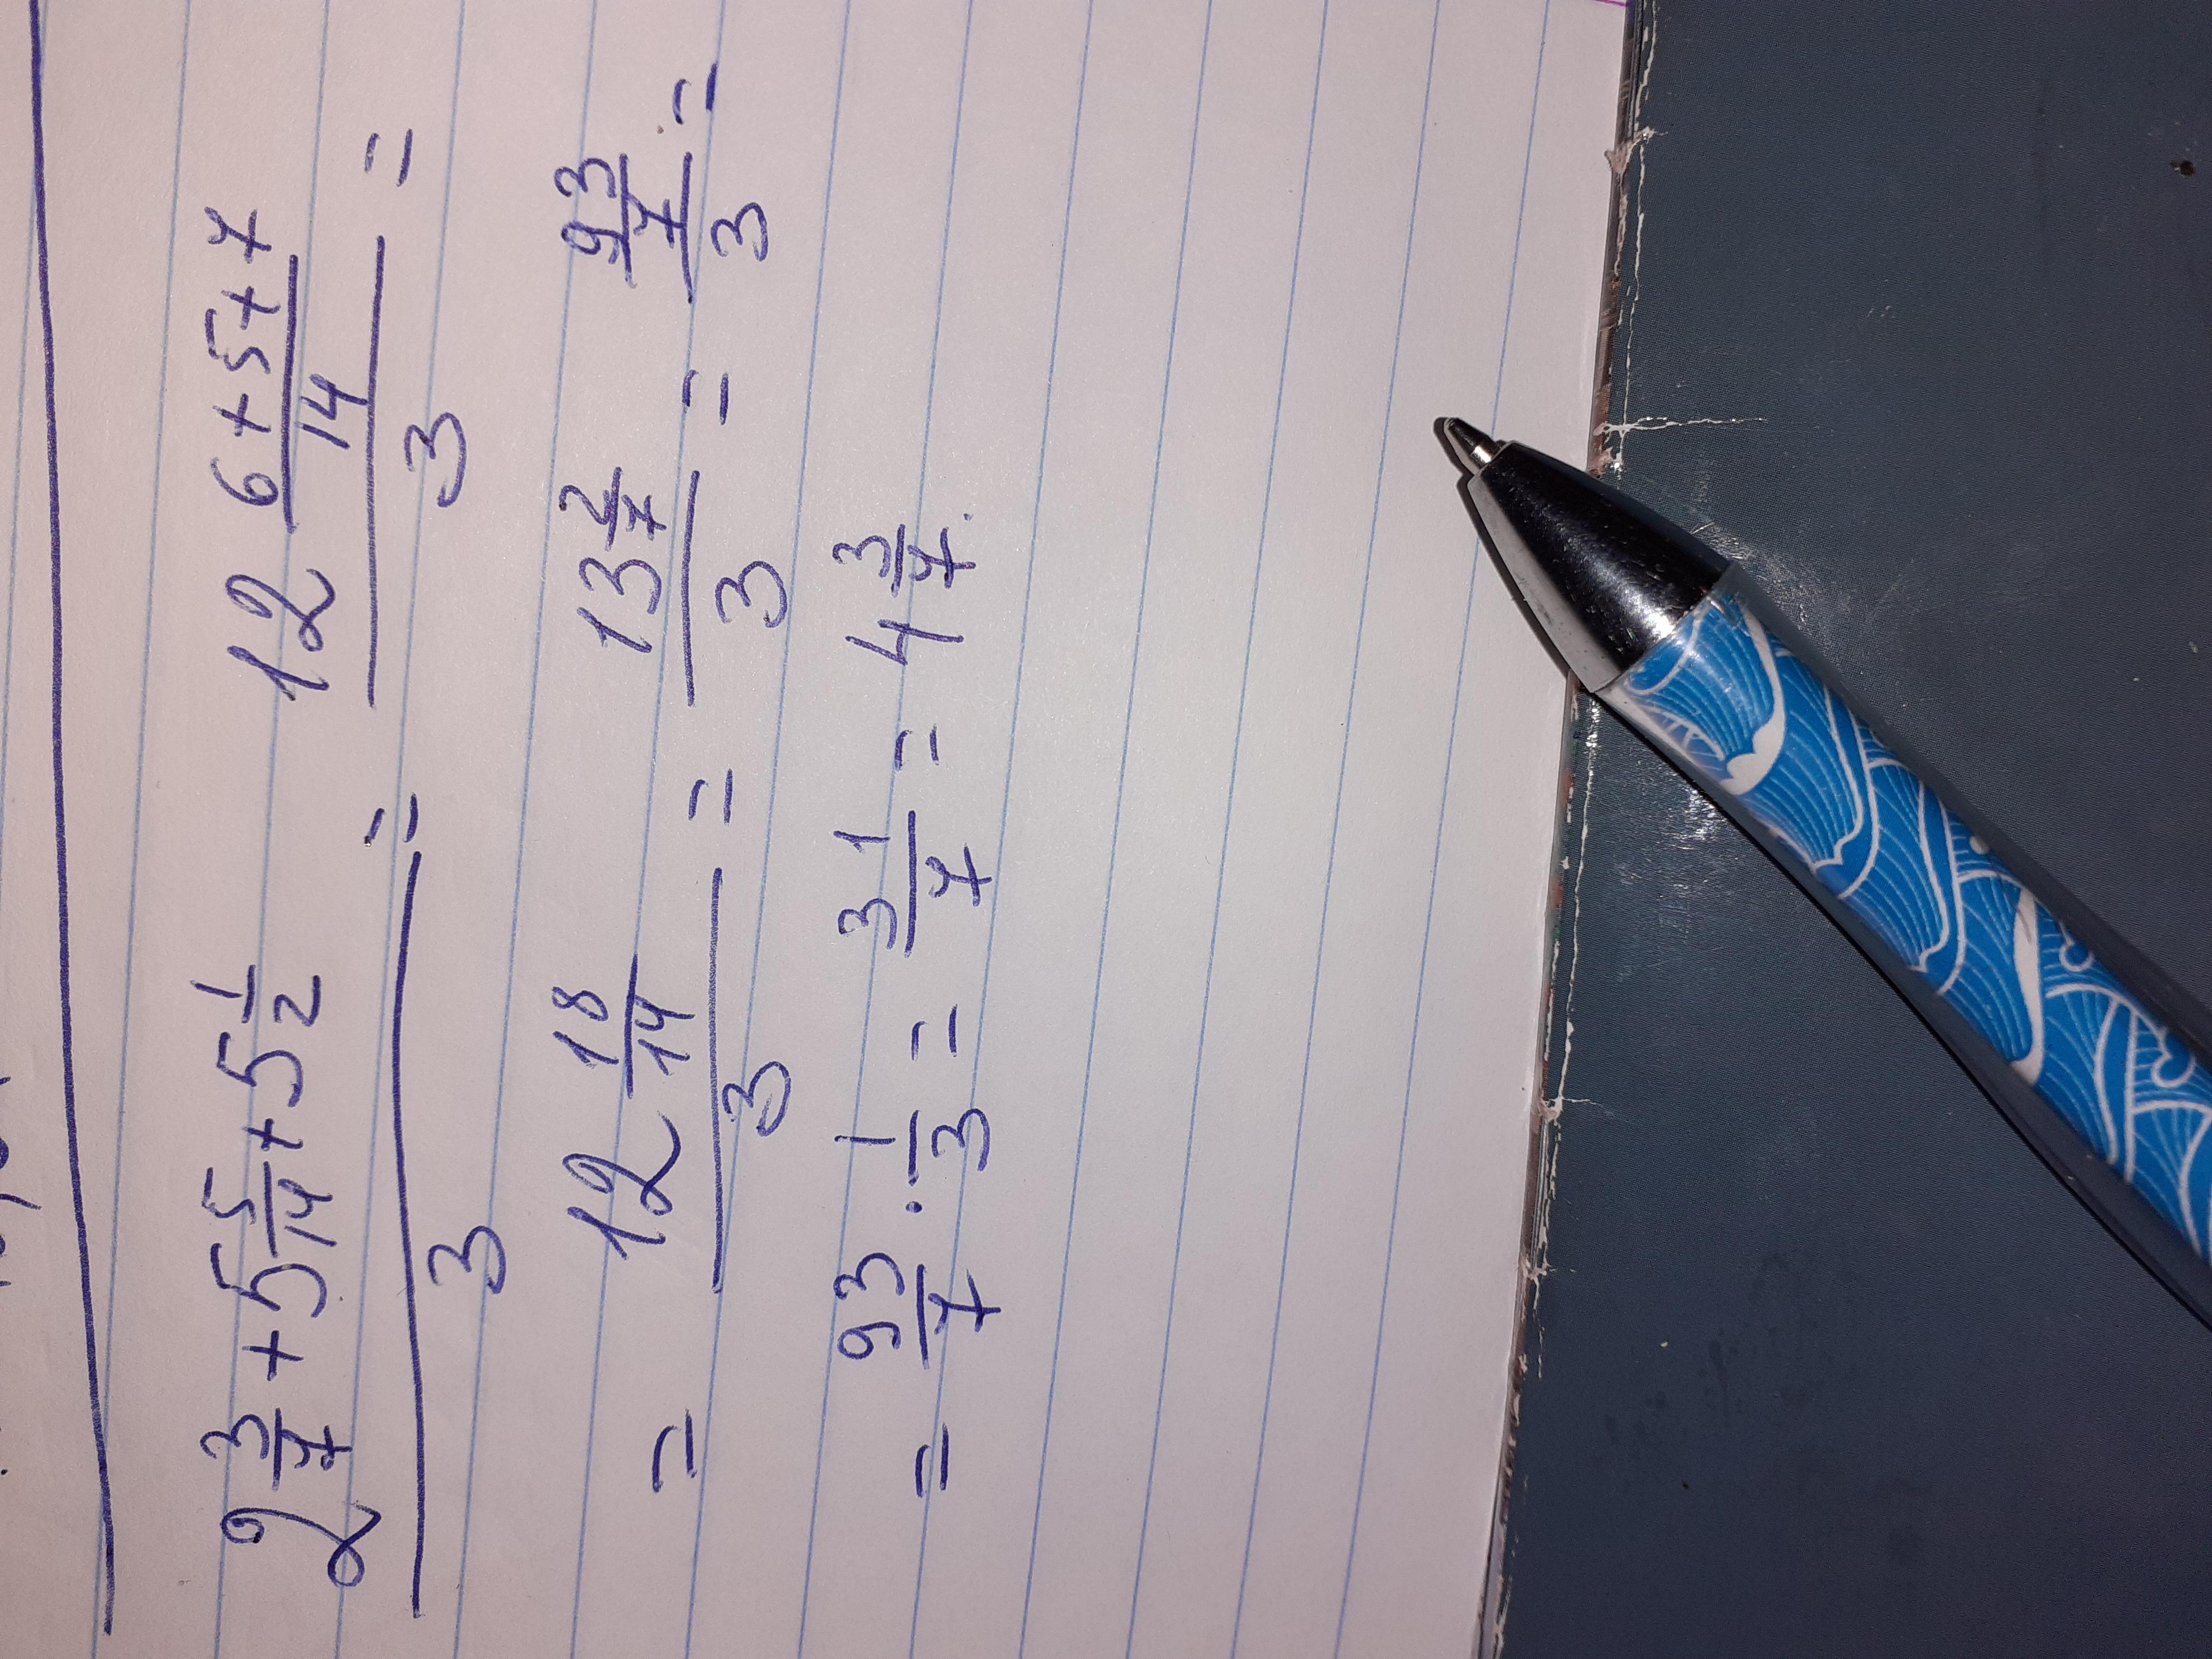 2 3/7 + 5 5/14 + 5 1/2 / 3 = 12 6+5+7/14 / 3 =
= 12 18/14 / 3 = 13 2/7 / 3 = 93/7 / 3 =
= 93/7 · 1/3 = 31/7 = 4 3/7.